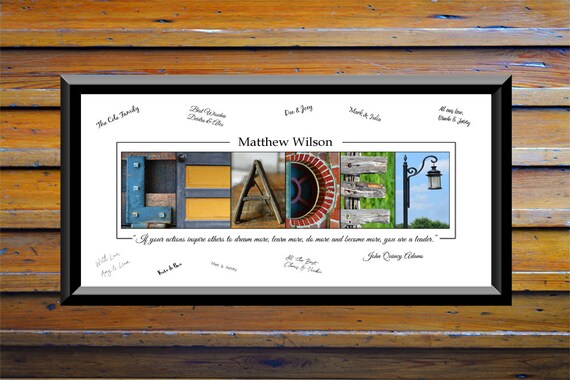 The Cole Family
Best Wishes
Deidra & Alex
Dee & Joey
Mark & Julia
All our love,
Uncle & Judy
Matthew Wilson
LEADER
"If your actions inspire others to dream more, learn more, do more and become more, you are a leader."
John Quincy Adams
With Love
Amy & Liam
Kate & Ben
All The Best,
Chris & Vicki